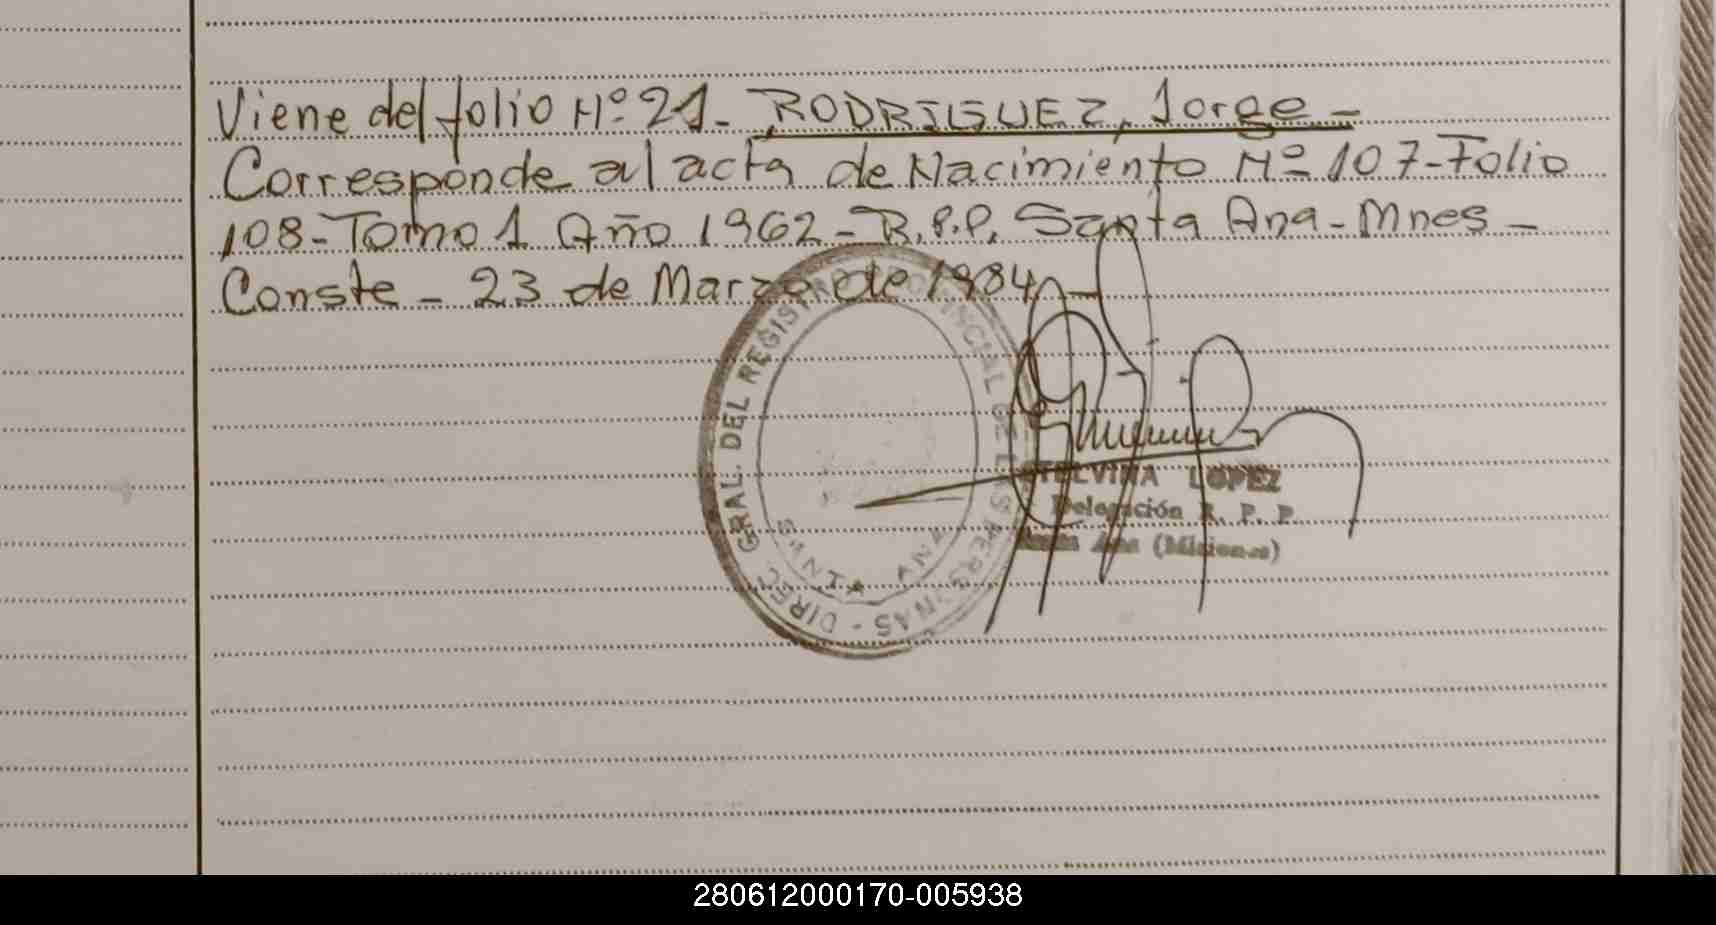 Viene del folio Nº 21- RODRIGUEZ, Jorge-
Corresponde al acta de Nacimiento Nº 107-Folio
108-Tomo 1 Año 1962-R.P.P. Santa Ana-Mnes-
Conste- 23 de Marzo de 1984-
DIREC. GRAL. DEL REGISTRO PROVINCIAL DE LAS PERSONAS -
SANTA ANA
ETELVINA LOPEZ
Delegación R. P. P.
Santa Ana (Misiones)
280612000170-005938